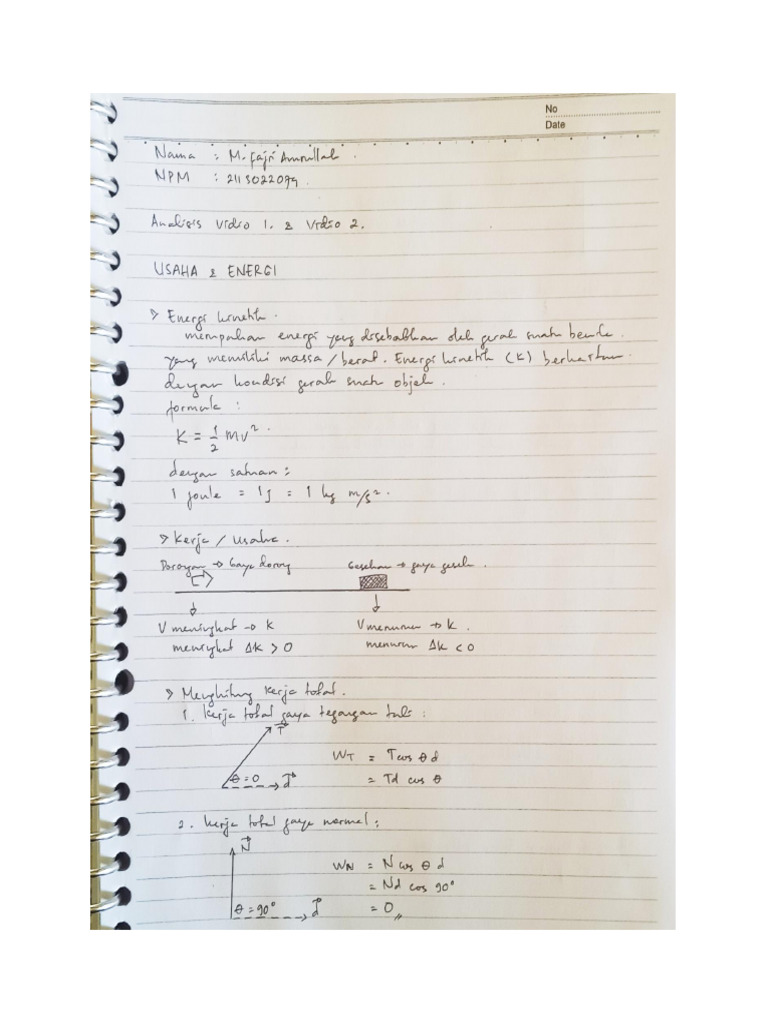 No
Date
Nama : M. Fajri Amrullah .
NPM : 2113022079.
Analisis Vidio 1. & Vidio 2.
USAHA & ENERGI
> Energi kinetik .
merupakan energi yang disebabkan oleh gerak suatu benda
yang memiliki massa / berat. Energi kinetik (K) berkaitan
dengan kondisi gerak suatu objek .
formula :
K = 1/2 mv².
dengan satuan :
1 joule = 1 J = 1 kg m/s².
> Kerja / Usaha .
Dorongan → Gaya dorong Gesekan → gaya gesek .
V meningkat → K V menurun → K .
meningkat ΔK > 0 menurun ΔK < 0
> Menghitung kerja total .
1. Kerja total gaya tegangan tali :
T
WT = T cos θ d
θ = 0 d = Td cos θ
2. Kerja total gaya normal :
N
WN = N cos θ d
= Nd cos 90°
θ = 90° d = 0 //